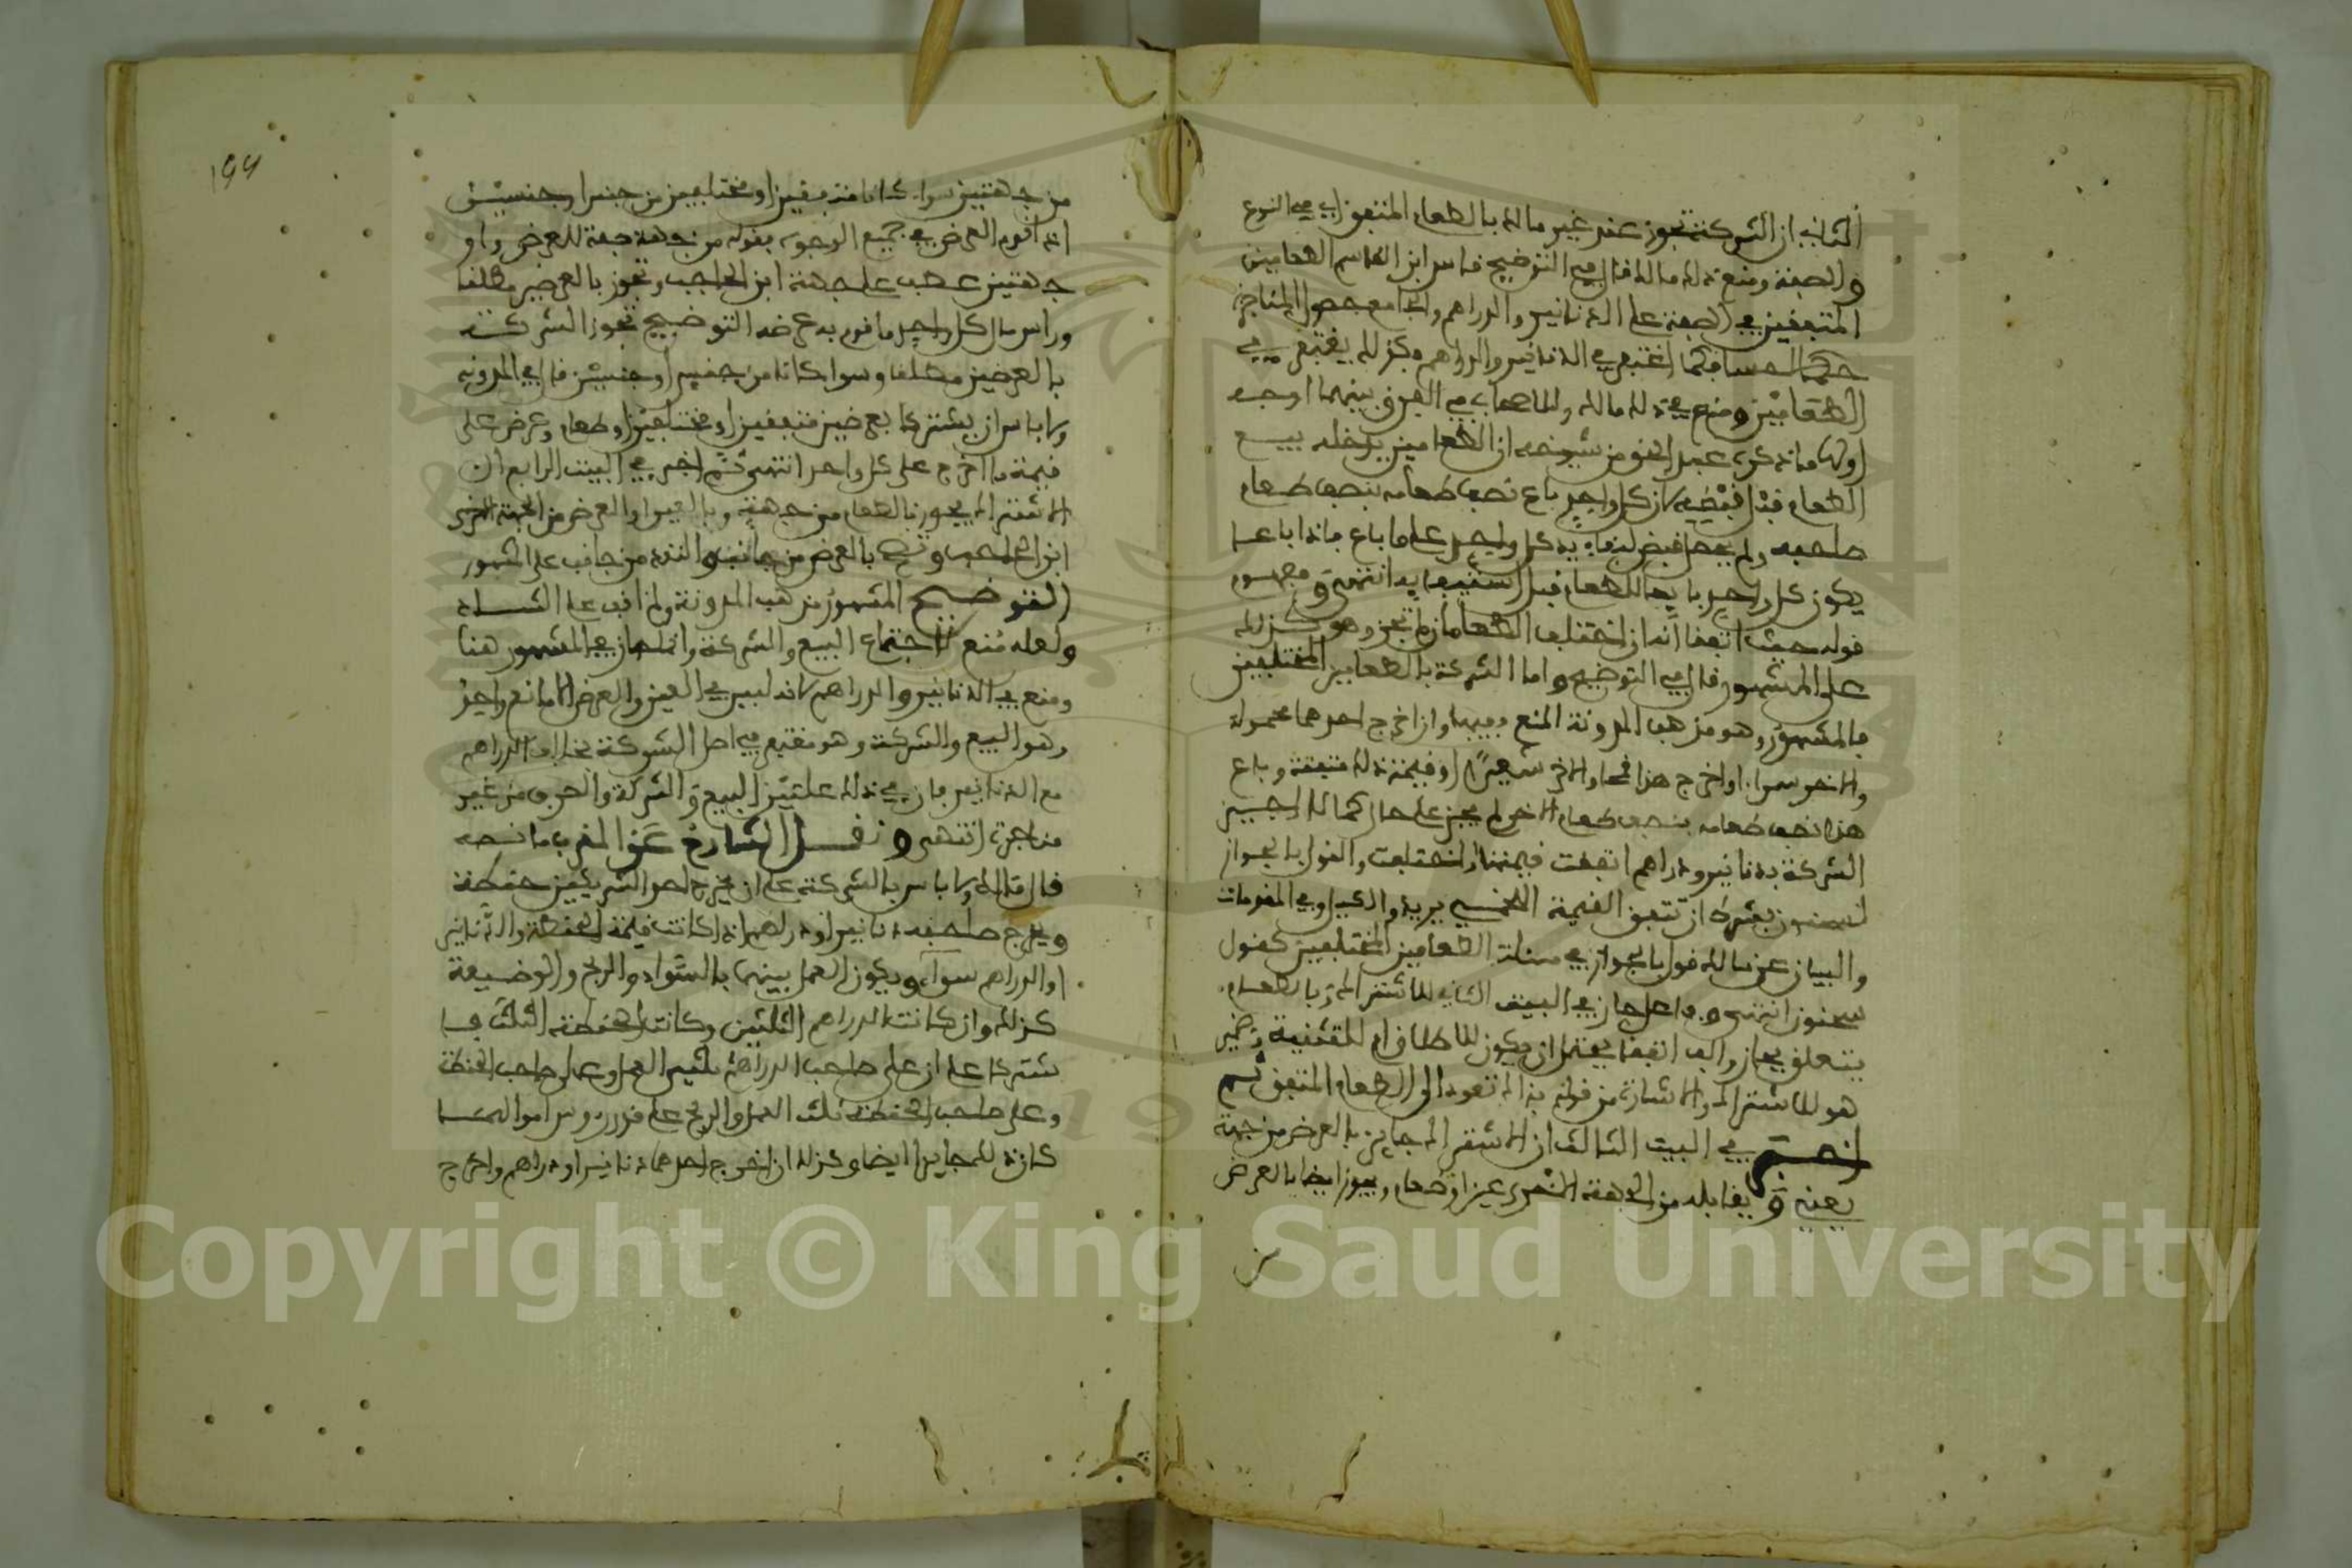 الثاني ان الشركة تجوز عند غير مالك بالطعام المتفق اي في النوع
والصفة ومنع ذلك مالك قال في التوضيح قاس ابن القاسم الطعامين
المتفقين في الصفة على الدنانير والدراهم والجامع حصول المناجزة
حكما لا حسا فكما اغتفر في الدنانير والدراهم وكذلك يغتفر في
الطعامين ومنع في ذلك مالك وللاصحاب في الفرق بينهما اوجه
اولها ما ذكره عبد الحق من شيوخه ان الطعامين يدخله بيع
الطعام قبل قبضه لان كل واحد باع نصف طعامه بنصف طعام
صاحبه ولم يحصل قبض لبقاء يد كل واحد على ما باع فاذا باعا
يكون كل واحد بايعا للطعام قبل استيفايه انتهى ومفهوم
قوله حيث اتفقا انه ان اختلف الطعامان لم تجز وهو كذلك
على المشهور قال في التوضيح واما الشركة بالطعامين المختلفين
فالمشهور وهو مذهب المدونة المنع وفيها وان اخرج احدهما محمولة
والاخر سمراء او اخرج هذا قمحا والاخر شعيرا او قيمة ذلك متفقة وباع
هذا نصف طعامه بنصف طعام الاخر لم يجز على حال كما لا اجيز
الشركة بدنانير ودراهم اتفقت قيمتها او اختلفت والقول بالجواز
لسحنون بشرط ان تتفق القيمة اللخمي يريد والكيل وفي المقدمات
والبيان عن مالك قول بالجواز في مسئلة الطعامين المختلفين كقول
سحنون انتهى وفاعل جاز في البيت الثاني للاشتراك وبالطعام
يتعلق بجاز والف اتفقا يحتمل ان يكون للاطلاق او للتثنية وضمير
هو للاشتراك والاشارة من قوله بذاك تعود الى الطعام المتفق ثم
اخبر في البيت الثالث ان الاشتراك جايز بالعرض من جهة
يعني ويقابله من الجهة الاخرى عين او طعام ويجوز ايضا بالعرض
١٩٩
من جهتين سواء كانا متفقين او مختلفين من جنس او جنسين
اذا قوم العرض في جميع الوجوه بقوله من جهة صفة للعرض واو
جهتين عطف على جهة ابن الحاجب وتجوز بالعرضين مطلقا
وراس مال كل واحد ما قوم به عرضه التوضيح تجوز الشركة
بالعرضين مطلقا وسواء كانا من جنس او جنسين قال في المدونة
ولا باس ان يشتركا بعرضين متفقين او مختلفين او طعام وعرض على
قيمة ما اخرج كل واحد انتهى ثم اخبر في البيت الرابع ان
الاشتراك يجوز بالطعام من جهة وبالعين او العرض من الجهة الاخرى
ابن الحاجب وتصح بالعرض من جانب والنقد من جانب على المشهور
التوضيح المشهور مذهب المدونة ولم اقف على الشاذ
ولعله منع لاجتماع البيع والشركة وانما جاز في المشهور هنا
ومنع في الدنانير والدراهم لانه ليس في العين والعرض الا مانع واحد
وهو البيع والشركة وهو مغتفر في اصل الشركة بخلاف الدراهم
مع الدنانير فان في ذلك علتين البيع والشركة والصرف من غير
مناجزة انتهى ونقل الشارح عن المغرب ما نصه
قال مالك ولا باس بالشركة على ان يخرج احد الشريكين حنطة
ويخرج صاحبه دنانير او دراهم اذا كانت قيمة الحنطة والدنانير
او الدراهم سواء ويكون العمل بينهما بالسواء والربح والوضيعة
كذلك وان كانت الدراهم الثلثين وكانت الحنطة الثلث فا
شتركا على ان على صاحب الدراهم ثلثي العمل وعلى صاحب الحنطة
وعلى صاحب الحنطة ثلث العمل والربح على قدر رءوس اموالهما
كان ذلك جايزا ايضا وكذلك ان اخرج احدهما دنانير او دراهم واخرج
Copyright © King Saud University